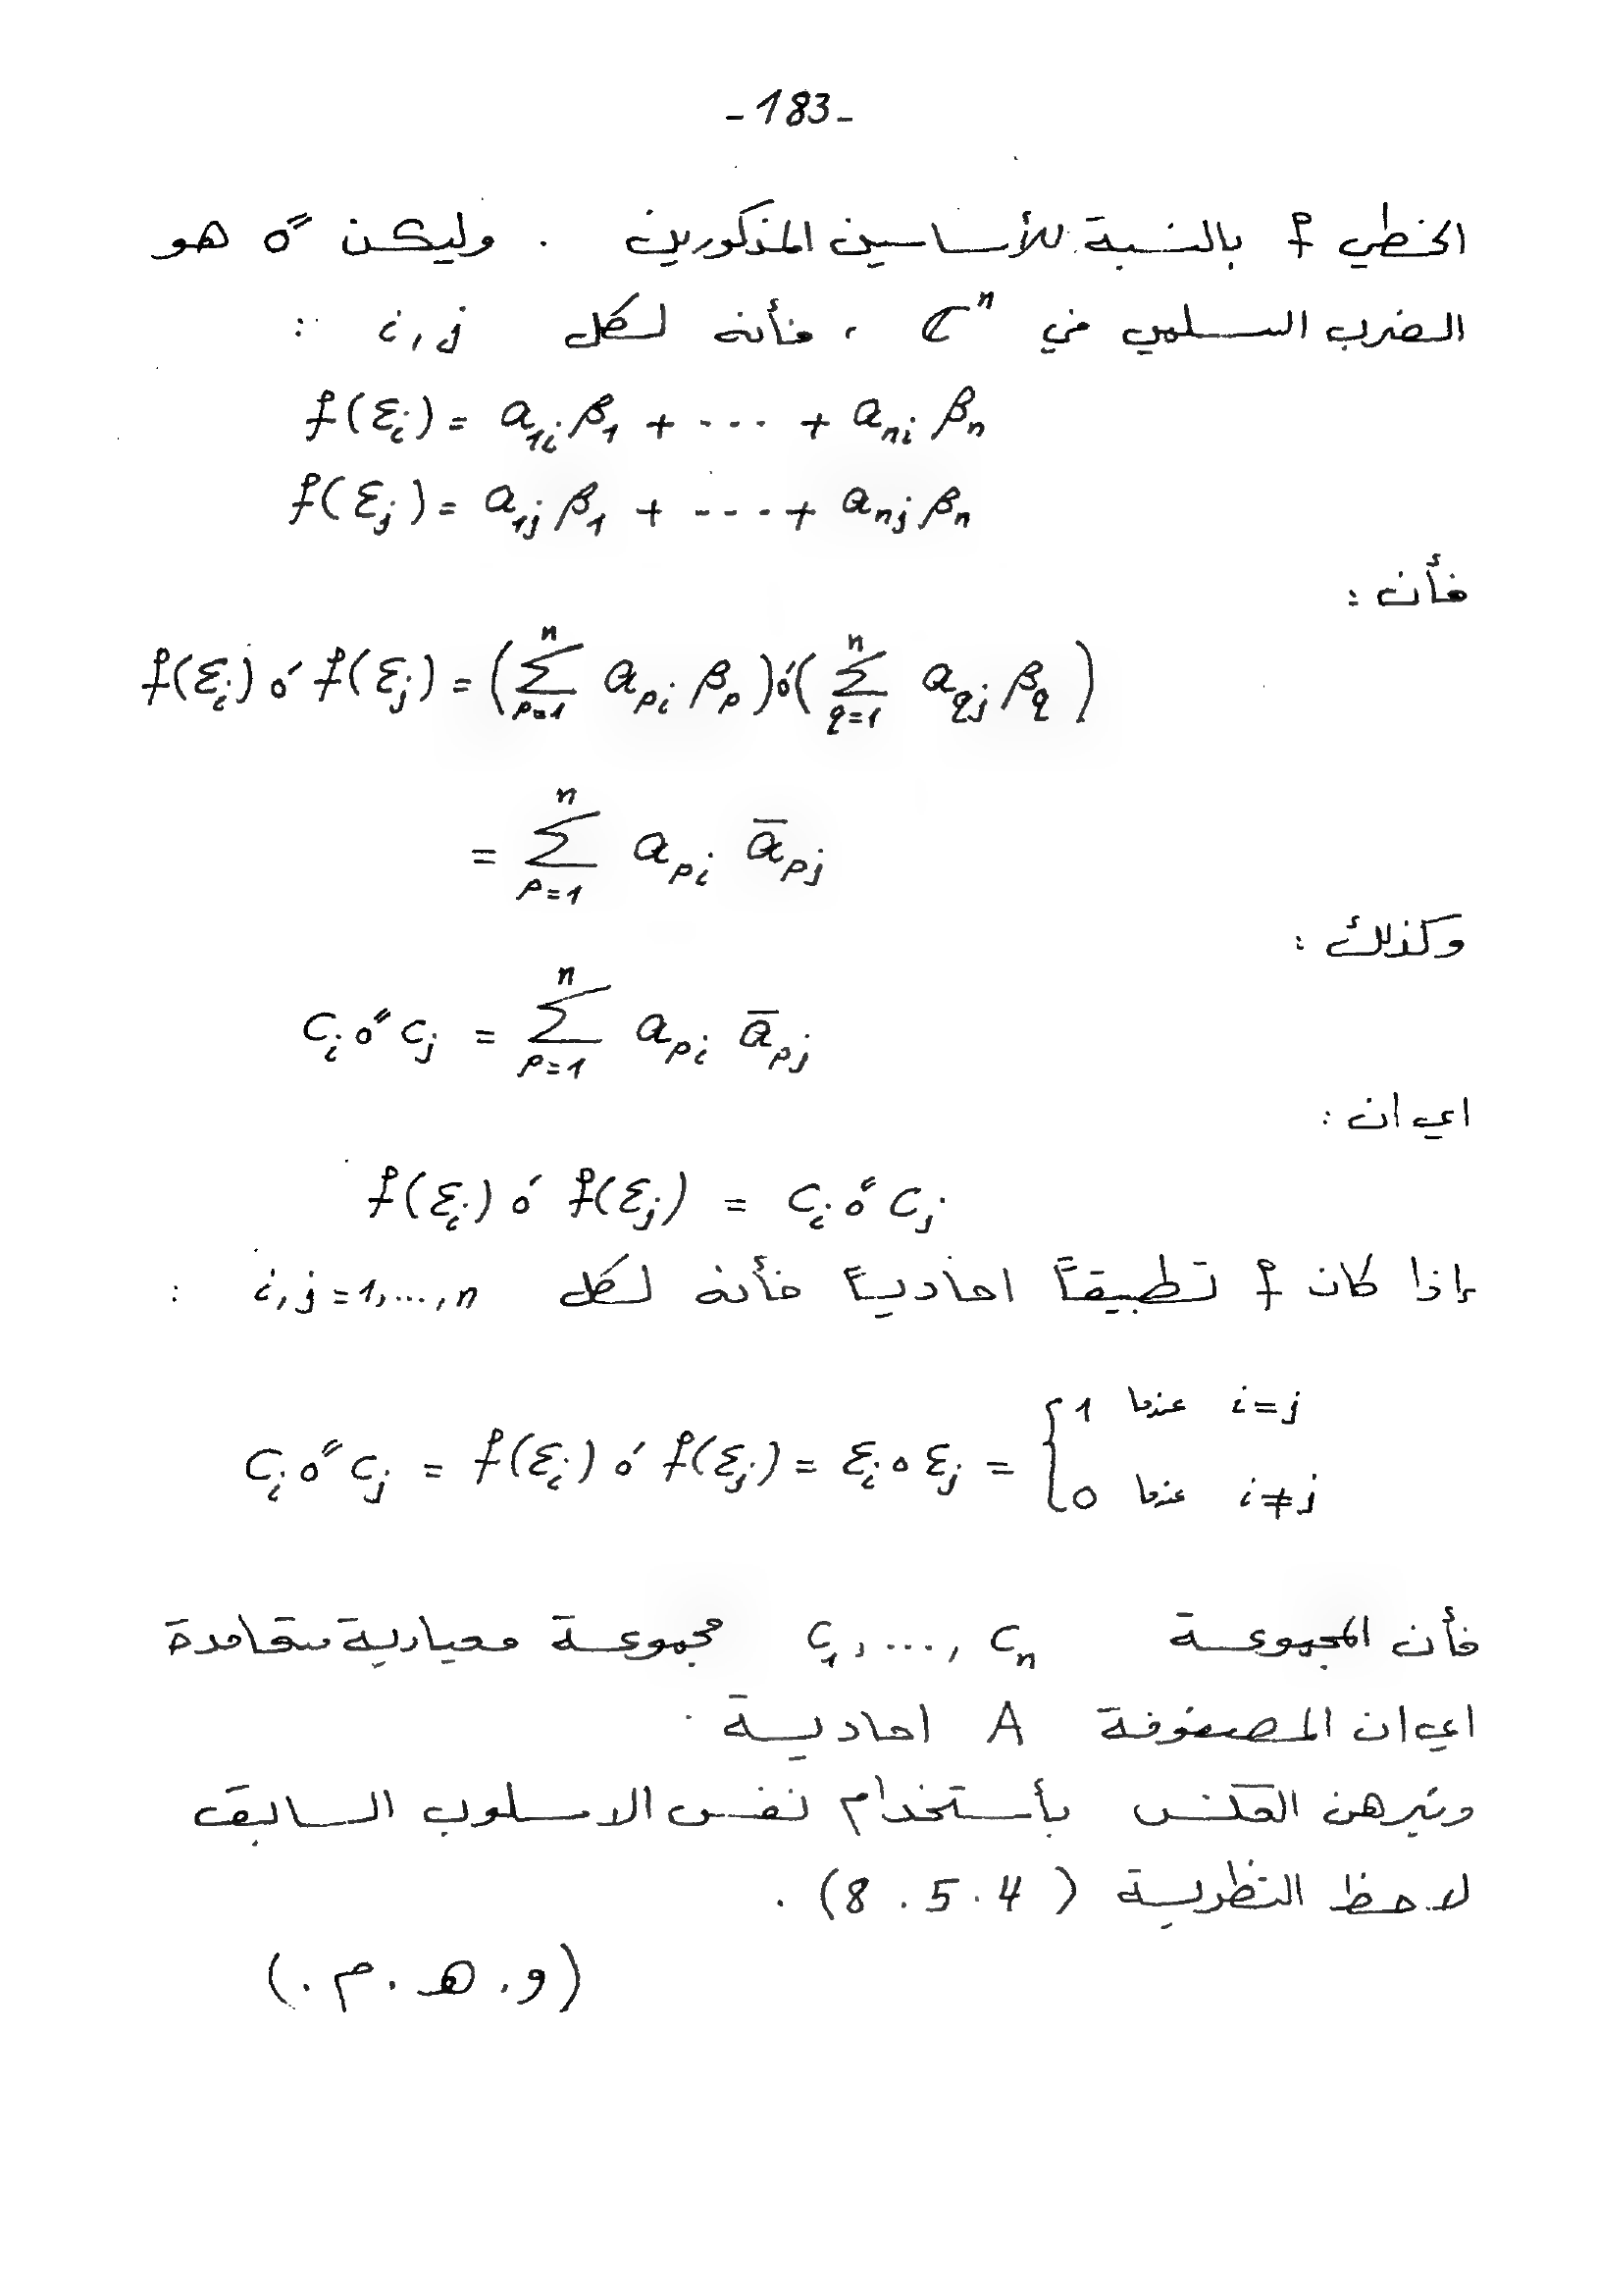 -183-
الخطي f بالنسبة للأساسين المذكورين . وليكن o″ هو
الضرب السلمي في ℂⁿ ، فأنه لكل i , j :
f(ε_i) = a_{1i} β_1 + ... + a_{ni} β_n
f(ε_j) = a_{1j} β_1 + ---- + a_{nj} β_n
فأن :
f(ε_i) o′ f(ε_j) = (∑_{p=1}^{n} a_{pi} β_p) o′ (∑_{q=1}^{n} a_{qj} β_q)
= ∑_{p=1}^{n} a_{pi} ā_{pj}
وكذلك :
c_i o″ c_j = ∑_{p=1}^{n} a_{pi} ā_{pj}
اي ان :
f(ε_i) o′ f(ε_j) = c_i o″ c_j
إذا كان f تطبيقاً احادياً فأنه لكل i, j = 1, ..., n :
c_i o″ c_j = f(ε_i) o′ f(ε_j) = ε_i o ε_j = { 1 عندما i = j
0 عندما i ≠ j
فأن المجموعة c_1 , ... , c_n مجموعة معيارية متعامدة
اي ان المصفوفة A احادية .
ونبرهن العكس بأستخدام نفس الاسلوب السابق
لاحظ النظرية ( 4 . 5 . 8) .
(و . هـ . م .)